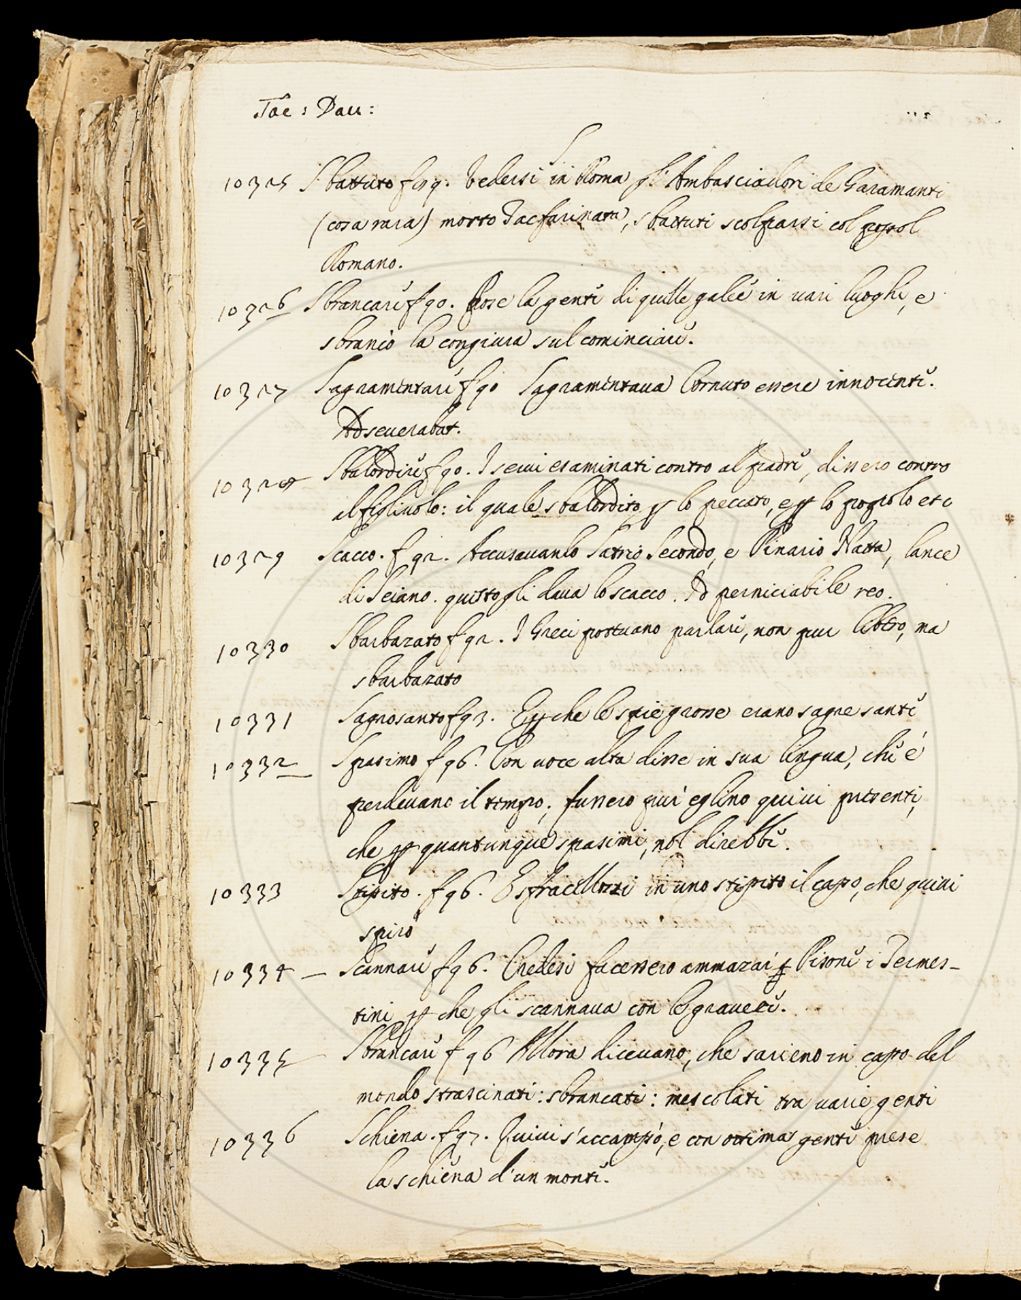 Tac: Dau:
S
10325 Sbattuto f 89. Vedersi in Roma gli Ambasciadori de Garamanti
(cosa rara) morto Tacfarinata, sbattuti scolparsi col popol
Romano.
10326 Sbrancare f 90. Pose la gente di quelle galee in vari luoghi, e
sbrancò la congiura sul cominciare.
10327 Sagramentare f 90 Sagramentava Cornuto essere innocente.
Adseverabat.
10328 Sbalordire f 90. I servi esaminati contro al padre, dissero contro
al figliuolo: il quale sbalordito p lo peccato, e p lo popolo etc
10329 Scacco. f 92. Accusavanlo Satrio Secondo, e Pinario Natta, lance
di Seiano. questo gli dava lo scacco. Id perniciabile reo.
10330 Sbarbazato f 92. I Greci poteano parlare, non pur libero, ma
sbarbazato
10331 Sagrosanto f 93. E p che le spie grosse erano sagre sante
10332 Spasimo f 96. Con voce alta disse in sua lingua, che è
perdevano il tempo; fussero pur eglino quivi presenti,
che p quantunque spasimi, nol direbbe.
10333 Stipito. f 96. E sfracellossi in uno stipito il capo, che quivi
spirò
10334 Scannare f 96. Credesi facessero ammazar Pisone i Termes-
tini p che gli scannava con le gravezze.
10335 Sbrancare f 96 Allora dicevano, che sarieno in capo del
mondo strascinati: sbrancati: mescolati tra varie genti
10336 Schiena. f 97. Quivi s'accampò, e con ottima gente prese
la schiena d'un monte.